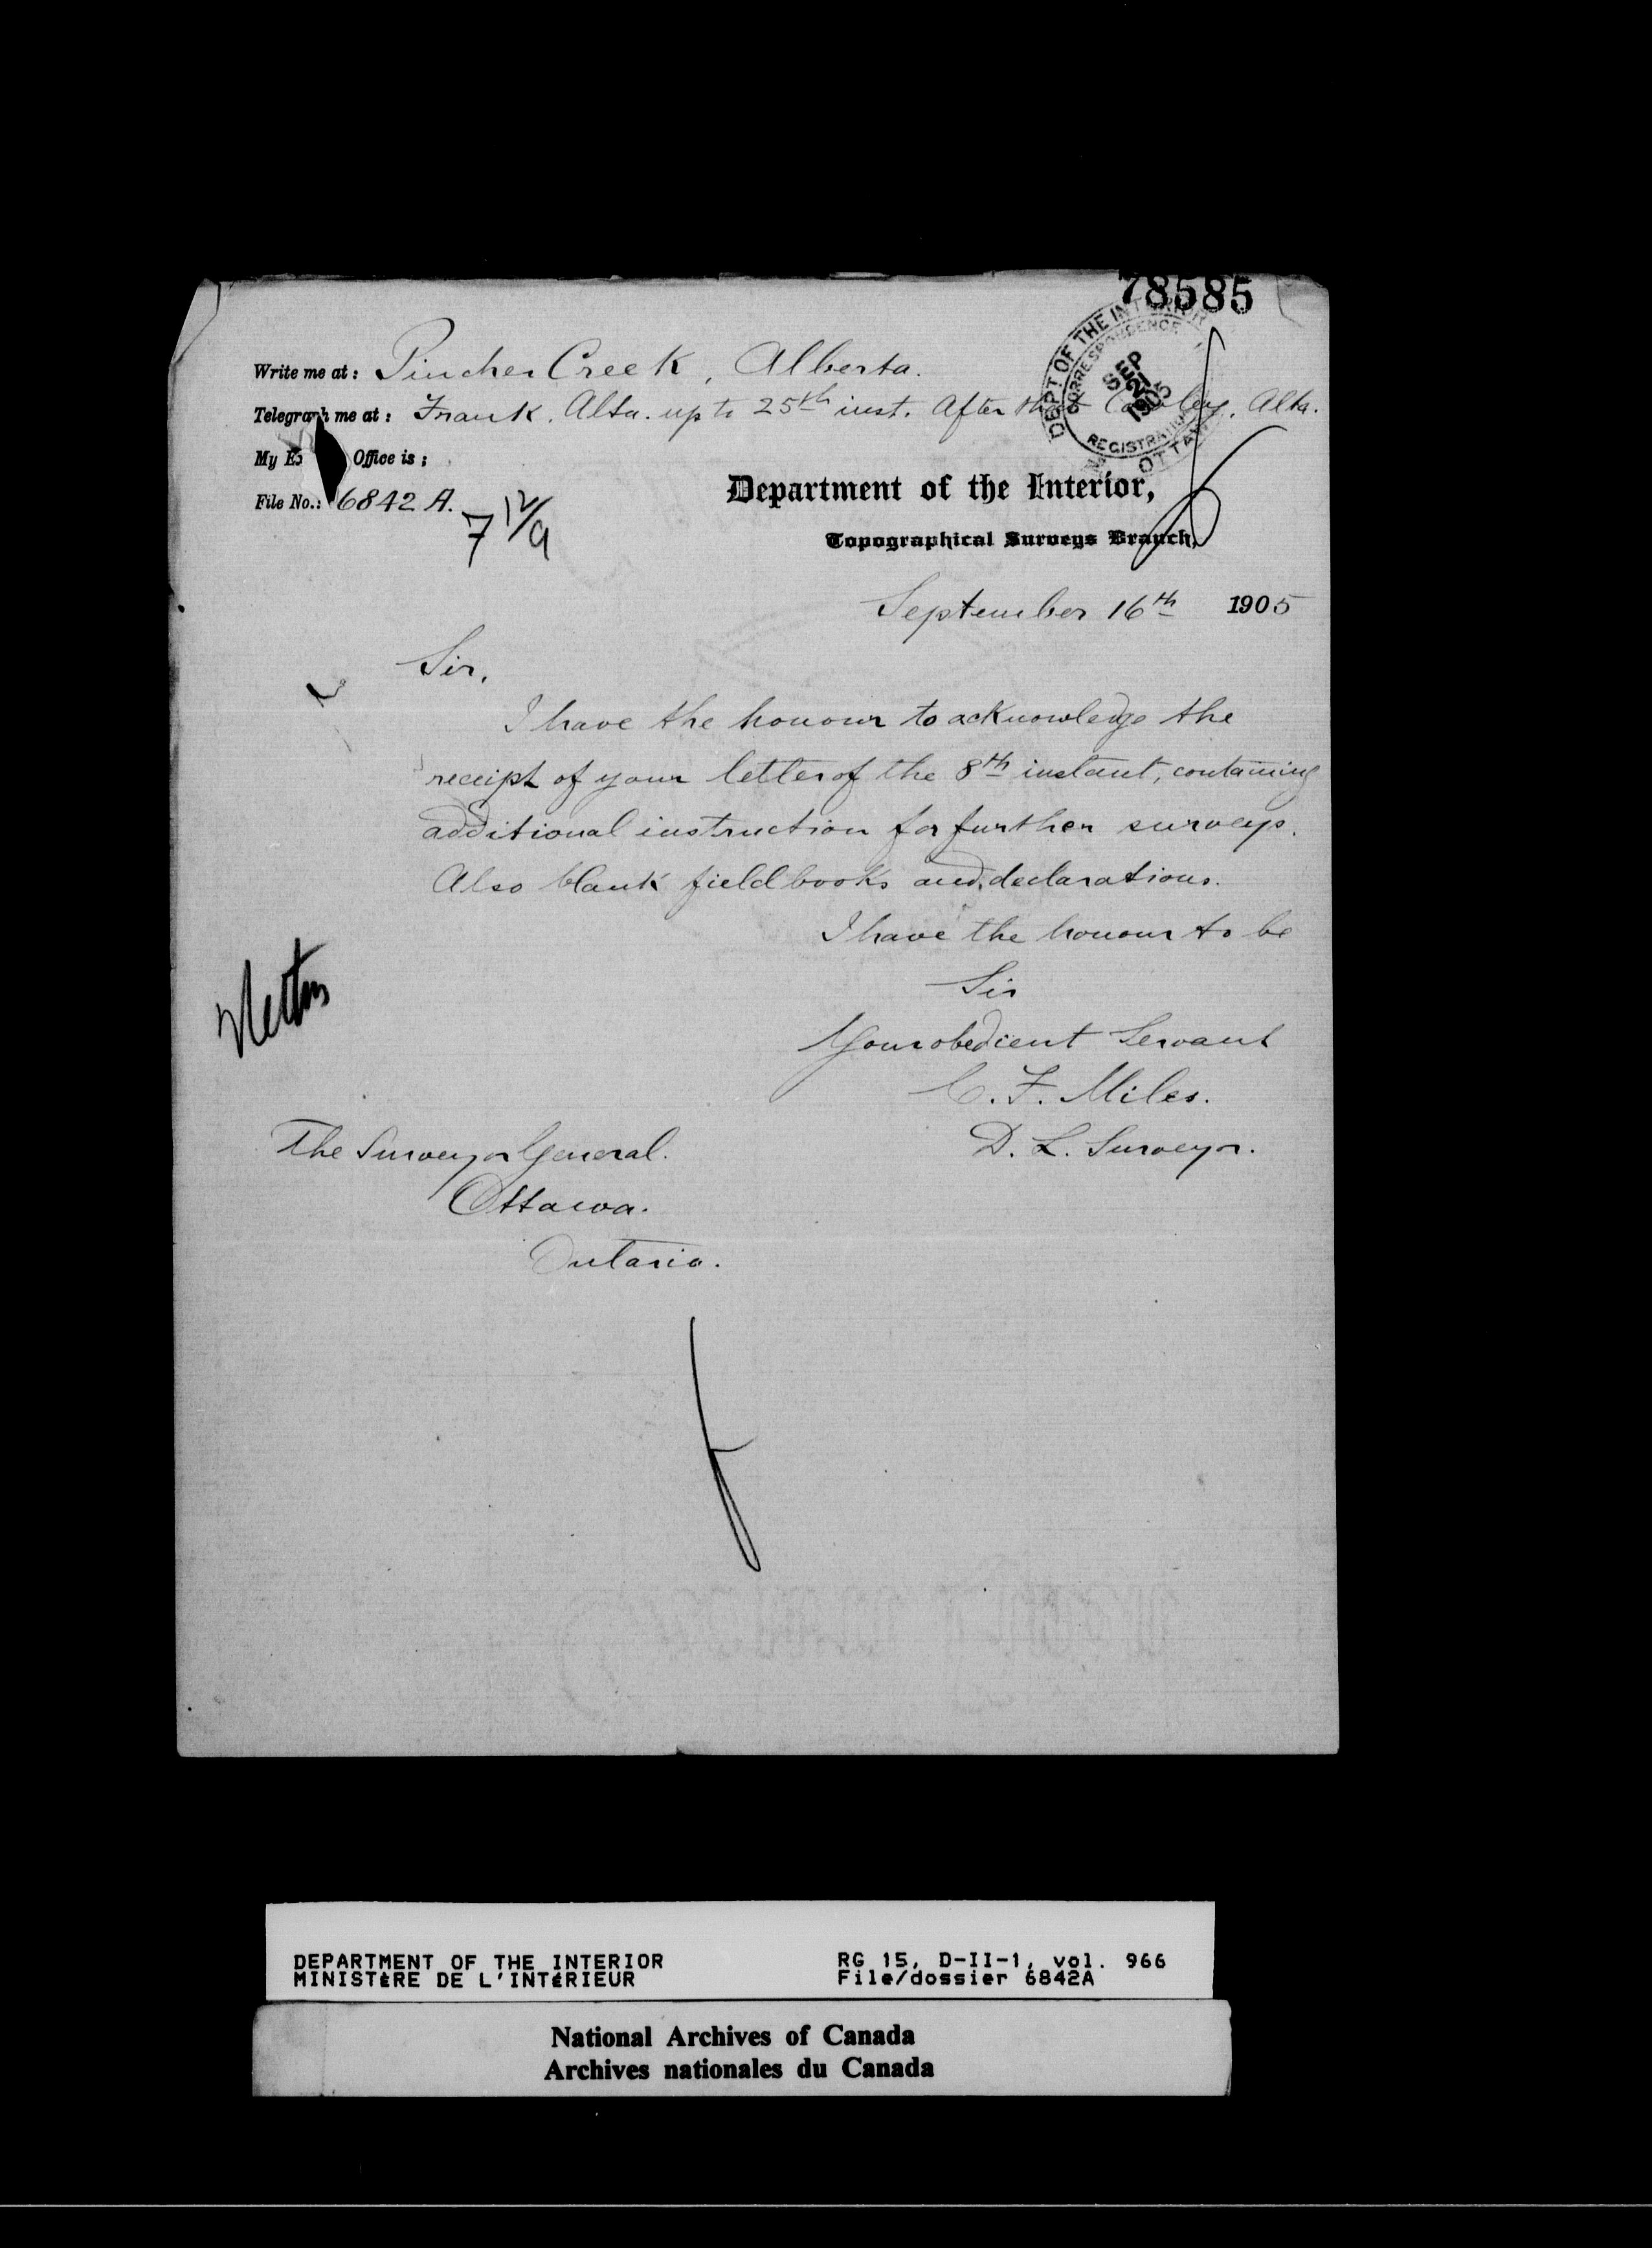 78585
DEPT OF THE INTERIOR
CORRESPONDENCE
SEP
21
1905
REGISTRATION
OTTAWA
Write me at: Pincher Creek, Alberta.
Telegraph me at: Frank, Alta. up to 25th inst. After that Cowley, Alta.
My Ex Office is:
File No.: 6842 A.
7 12/9
Department of the Interior,
Topographical Surveys Branch,
September 16th 1905
Sir,
I have the honour to acknowledge the
receipt of your letter of the 8th instant, containing
additional instruction for further surveys.
Also blank field books and declarations.
I have the honour to be
Sir
Your obedient Servant
C. F. Miles.
D. L. Surveyor.
The Surveyor General.
Ottawa.
Ontario.
DEPARTMENT OF THE INTERIOR
MINISTÈRE DE L'INTÉRIEUR
RG 15, D-II-1, vol. 966
File/dossier 6842A
National Archives of Canada
Archives nationales du Canada